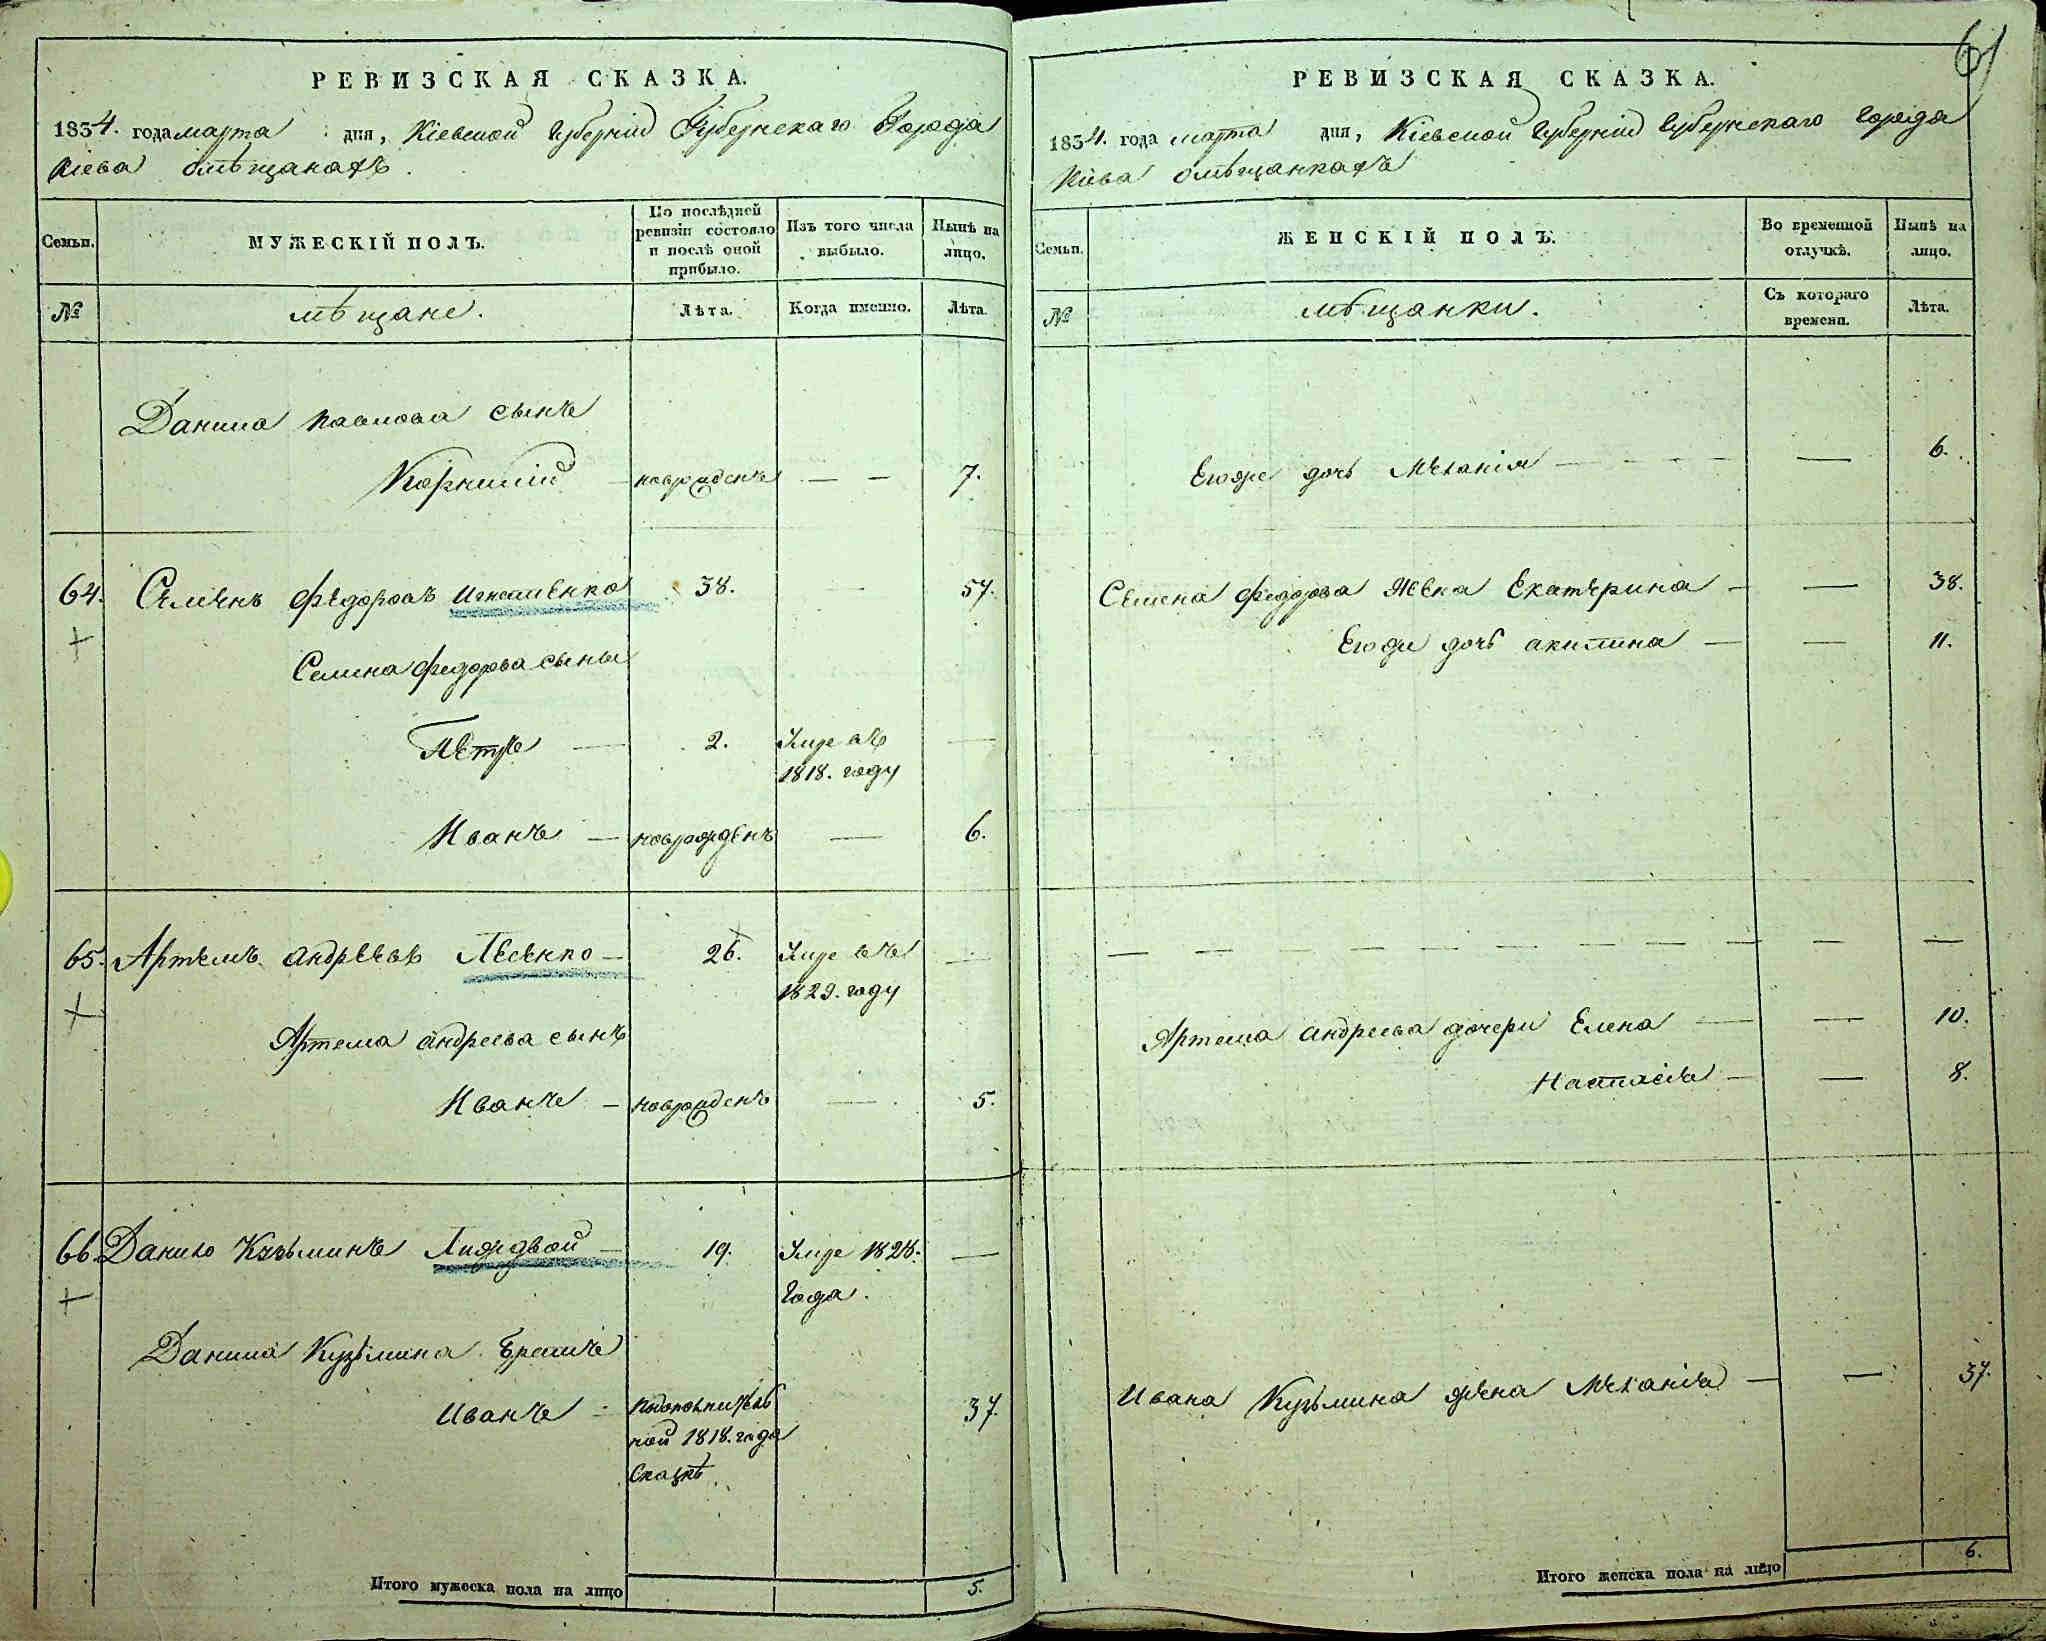 РЕВИЗСКАЯ СКАЗКА.
1834. года марта дня, Кіевской Губерніи Губернскаго Города
Кіева омѣщанахъ.
Семьи. МУЖЕСКІЙ ПОЛЪ. По послѣдней ревизіи состояло и послѣ оной прибыло. Изъ того числа выбыло. Нынѣ на лицо.
№ мѣщане. Лѣта. Когда именно. Лѣта.
Данила Павлова сынъ
Корнилій новрожденъ — — 7.
64. Семенъ Федоровъ Игнатенко 38. — 57.
Семена Федорова сыны
Петръ — 2. Умре въ —
1818. году
Иванъ — новрожденъ — 6.
65. Артемъ Андреевъ Лесенко — 26. Умре въ —
1829. году
Артема Андреева сынъ
Иванъ — новрожденъ — 5.
66. Данило Кузьминъ — 19. Умре 1828. —
года.
Данила Кузьмина братъ
Иванъ — подополнитель 37.
ной 1818. года
Сказкѣ
Итого мужеска пола на лицо 5.
61
РЕВИЗСКАЯ СКАЗКА.
1834. года марта дня, Кіевской Губерніи Губернскаго города
Кіева омѣщанкахъ
Семьи. ЖЕНСКІЙ ПОЛЪ. Во временной отлучкѣ. Нынѣ на лицо.
№ мѣщанки. Съ котораго времени. Лѣта.
Егоже дочь Меланія — — 6.
Семена Федорова жена Екатерина — — 38.
Егоже дочь акилина — — 11.
— — — — — — — — — — — —
Артема Андреева дочери Елена — — 10.
Настасія — — 8.
Ивана Кузьмина жена Меланія — — 37.
Итого женска пола на лицо 6.